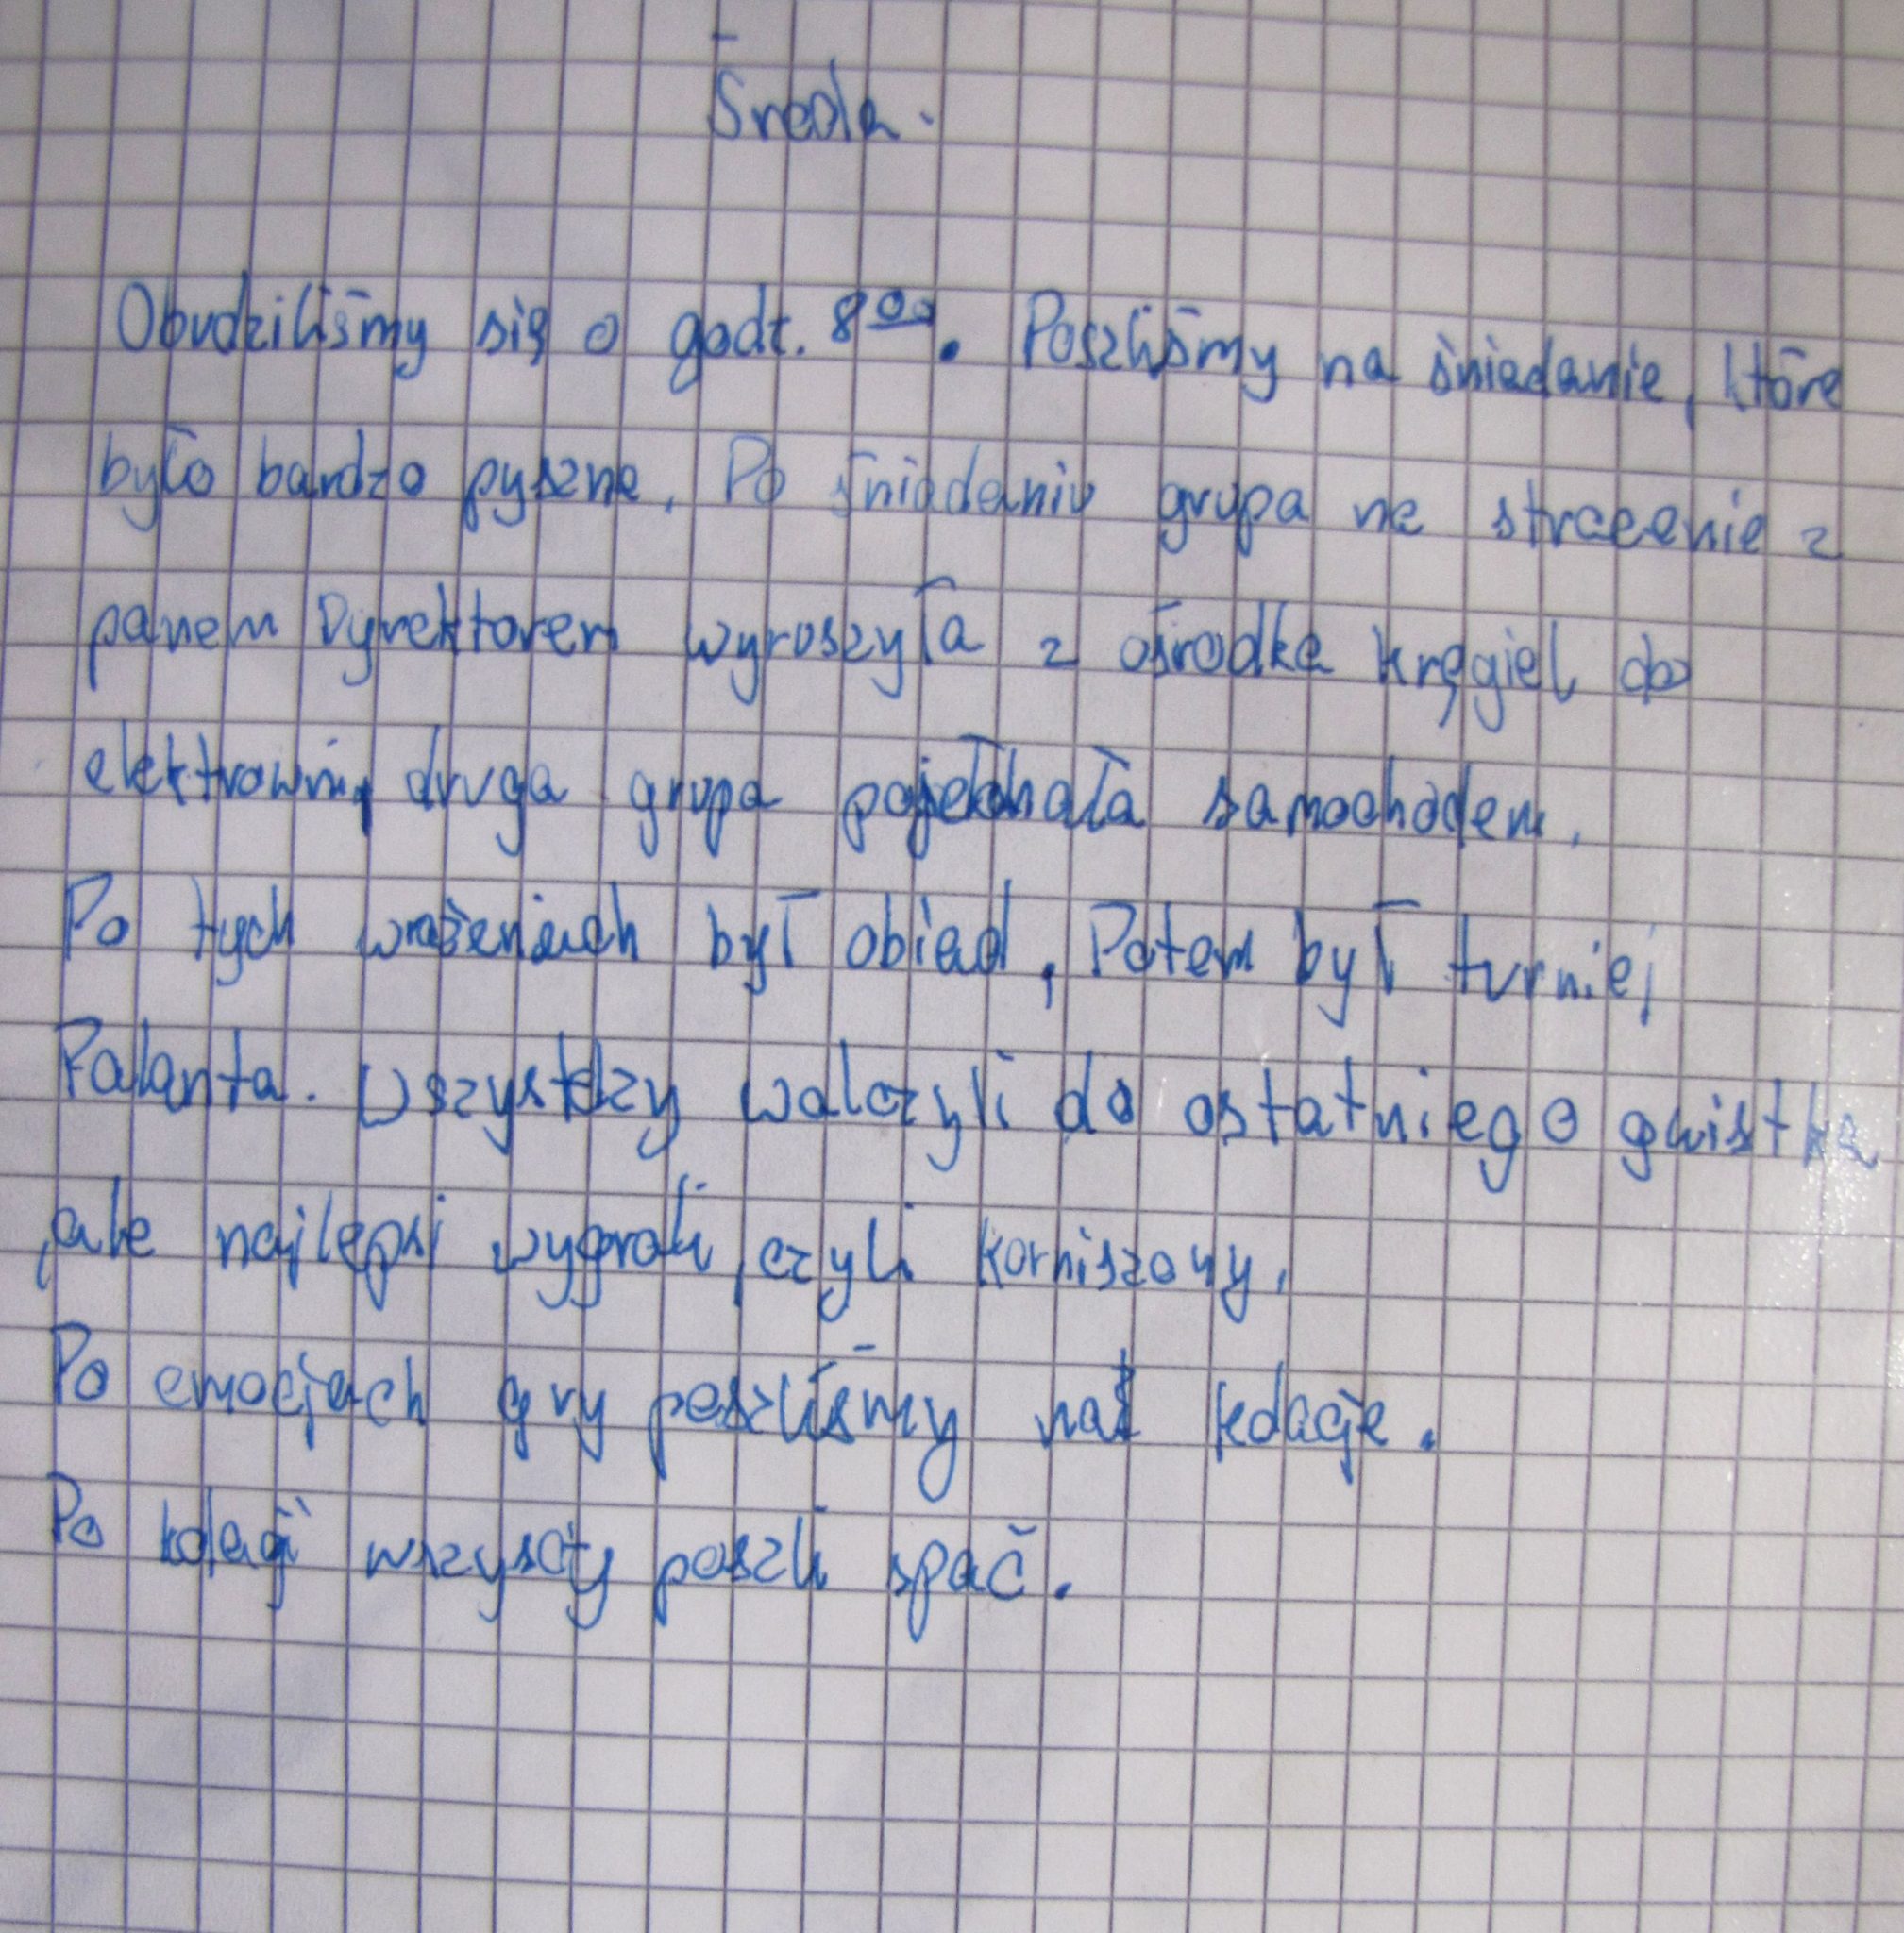 Środa.
Obudziliśmy się o godz. 8⁰⁰. Poszliśmy na śniadanie, które
było bardzo pyszne. Po śniadaniu grupa na straceenie z
panem Dyrektorem wyruszyła z ośrodka Kręgiel do
elektrowni, druga grupa pojechała samochodem.
Po tych wrażeniach był obiad, Potem był turniej
Palanta. Wszystkzy walczyli do ostatniego gwistka
,ale najlepsi wygrali, czyli Korniszony.
Po emocjach gry poszliśmy na kolacje.
Po kolacji wszyscy poszli spać.